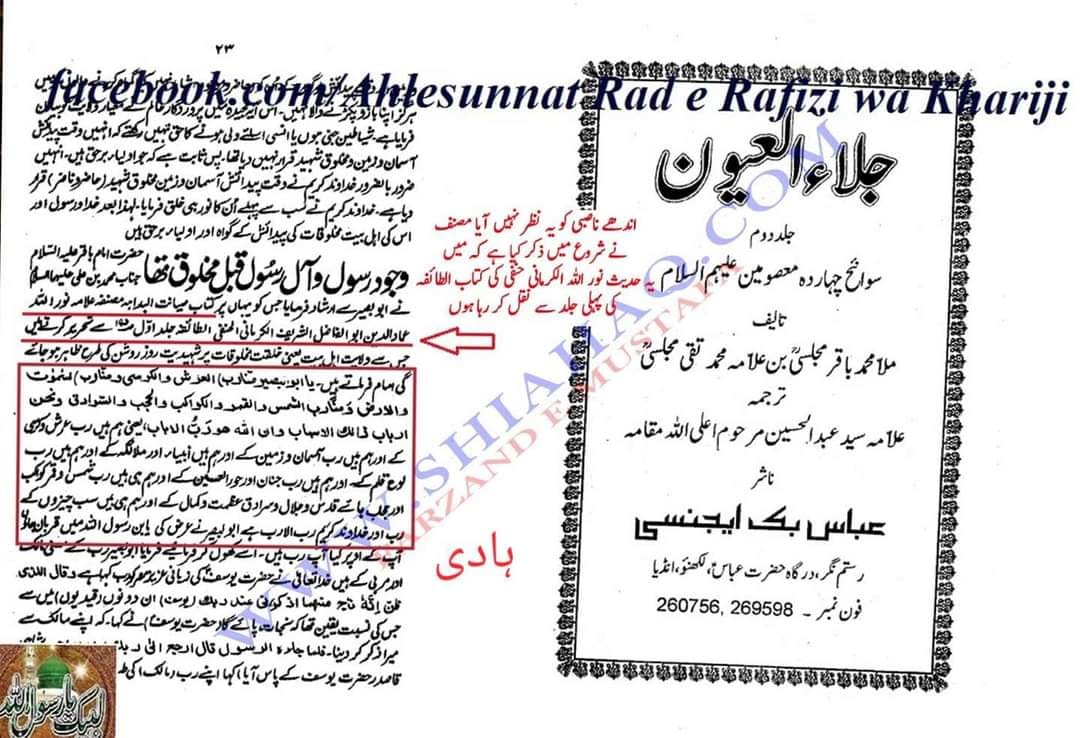 facebook.com/Ahlesunnat Rad e Rafizi wa Khariji
جلاء العیون
جلد دوم
سوانح چہاردہ معصومین علیہم السلام
تالیف
ملا محمد باقر مجلسیؒ بن علامہ محمد تقی مجلسیؒ
ترجمہ
علامہ سید عبدالحسین مرحوم اعلی اللہ مقامہ
ناشر
عباس بک ایجنسی
رستم نگر، درگاہ حضرت عباسؑ، لکھنؤ، انڈیا
فون نمبر۔ 260756, 269598
اندھے ناصبی کو یہ نظر نہیں آیا مصنف
نے شروع میں ذکر کیا ہے کہ میں
یہ حدیث نور اللہ الکرمانی حنفی کی کتاب الطائفہ
کی پہلی جلد سے نقل کر رہا ہوں
ہادی
WWW.SHIAHAQ.COM
FARZAND E MUSTAFA
۲۳
فرمایا ہے۔ شیاطین جنی ہوں یا انسی ایسے ولی ہونے کا حق نہیں رکھتے کہ انہیں وقت پیدائش
آسمان و زمین و مخلوق شہید قرار نہیں دیا تھا۔ پس ثابت ہے کہ جو اولیاء برحق ہیں۔ انہیں
ضرور بالضرور خداوند کریم نے وقت پیدائش آسمان و زمین مخلوق شہید (حاضر و ناضر) قرار
دیا ہے۔ خداوند کریم نے سب سے پہلے اُن کا نور ہی خلق فرمایا۔ لہذا بعد خدا و رسول اور
اس کی اہل بیت مخلوقات کی پیدائش کے گواہ اور اولیاء برحق ہیں
وجود رسول و آل رسول قبل مخلوق تھا
حضرت امام باقر علیہ السلام
جناب محمد بن علی علیہما السلام
نے ابو بصیر سے ارشاد فرمایا جس کو یہاں پر کتاب صیانت البدایہ مصنفہ علامہ نور اللہ
عماد الدین ابو الفاضل الشریف الکرمانی الحنفی الطائفہ جلد اوّل سے تحریر کرتے ہیں
جس سے ولایت اہل بیت یعنی خلقت مخلوقات پر شہیدیت روز روشن کی طرح ظاہر ہو جائے
گی امام فرماتے ہیں۔ یا ابو بصیر العرش والکرسی
والارض الشمس والقمر والکواکب والحجب والسرادق ونحن
ارباب وان اللہ هو رب الارباب، یعنی ہم ہیں رب عرش و کرسی
کے اور ہم ہیں رب آسمان و زمین کے اور ہم ہیں انبیاء اور ملائکہ کے اور ہم ہیں رب
لوح قلم کے۔ اور ہم ہیں رب جنان اور حور العین کے اور ہم ہی ہیں رب شمس و قمر کوکب
اور حجاب ہائے قدس و جلال و سرادق عظمت و کمال کے اور ہم ہی ہیں سب چیزوں کے
رب اور خداوند کریم رب الارباب ہے ابو بصیر نے عرض کی یا بن رسول اللہ میں قربان جاؤں
آپ کے اوپر کیا آپ رب ہیں۔ فرمایا ابو بصیر رب کے معنی مالک
اور مربی کے ہیں خدا تعالٰی نے حضرت یوسف کی زبانی عزیز مصر کو رب کہا ہے و قال للذی
ظن انه ناج منهما اذکرنی عند ربک (یوسف) ان دونوں (قیدیوں) میں سے
جس کی نسبت یقین تھا کہ نجات پائے گا (حضرت یوسف) نے کہا۔ کہ اپنے مالک سے
میرا ذکر کر دینا۔ فلما جاءہ الرسول قال ارجع الی
قاصد حضرت یوسف کے پاس آیا (کہا) اپنے رب (مالک) کی
لبیک یا رسول اللہ